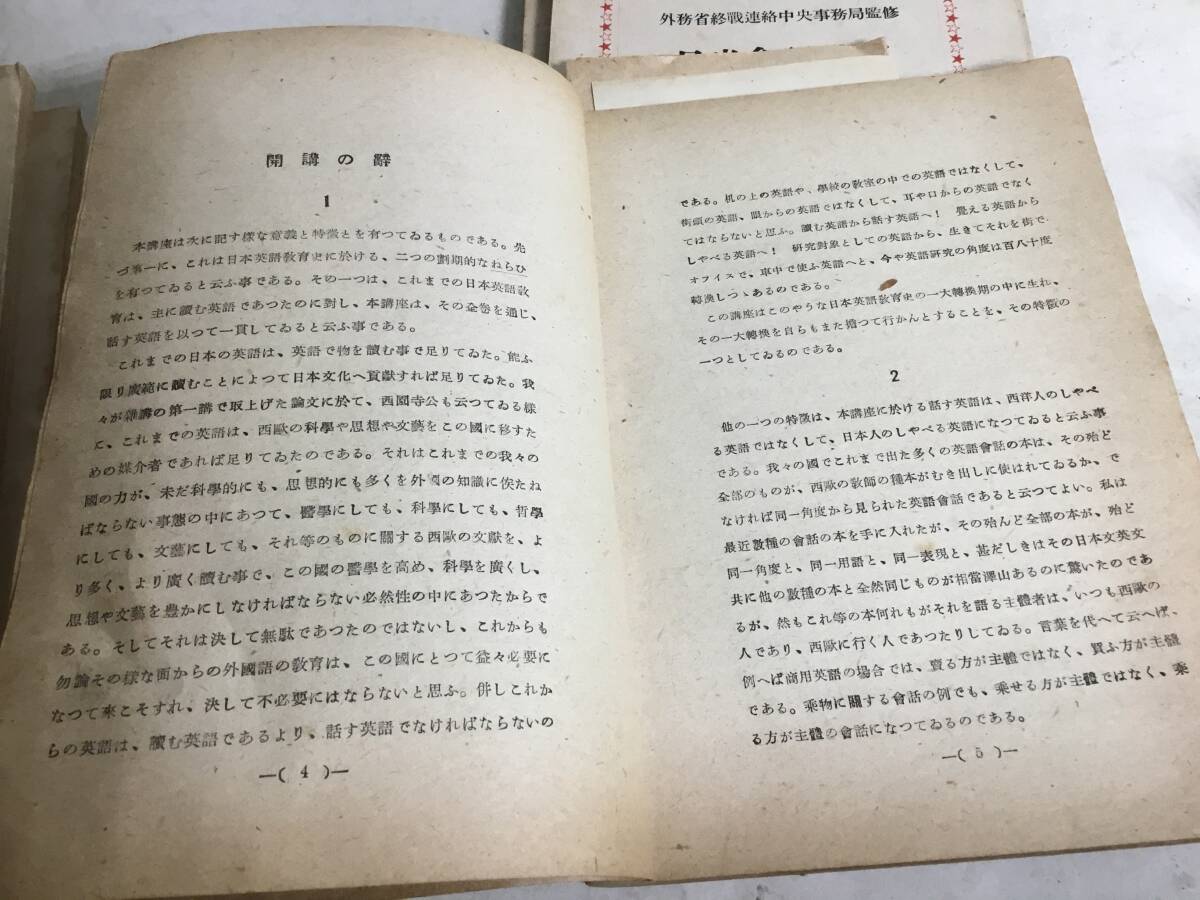 外務省終戰連絡中央事務局監修
開講の辭
1
本講座は次に記す樣な意義と特徵とを有つてゐるものである。先
づ第一に、これは日本英語敎育史に於ける、二つの劃期的なねらひ
を有つてゐると云ふ事である。その一つは、これまでの日本英語敎
育は、主に讀む英語であつたのに對し、本講座は、その全卷を通じ、
話す英語を以つて一貫してゐると云ふ事である。
これまでの日本の英語は、英語で物を讀む事で足りてゐた。能ふ
限り廣範に讀むことによつて日本文化へ貢獻すれば足りてゐた。我
々が雜講の第一講で取上げた論文に於て、西園寺公も云つてゐる樣
に、これまでの英語は、西歐の科學や思想や文藝をこの國に移すた
めの媒介者であれば足りてゐたのである。それはこれまでの我々の
國の力が、未だ科學的にも、思想的にも多くを外國の知識に俟たね
ばならない事態の中にあつて、醫學にしても、科學にしても、哲學
にしても、文藝にしても、それ等のものに關する西歐の文獻を、よ
り多く、より廣く讀む事で、この國の醫學を高め、科學を廣くし、
思想や文藝を豊かにしなければならない必然性の中にあつたからで
ある。そしてそれは決して無駄であつたのではないし、これからも
勿論その樣な面からの外國語の敎育は、この國にとつて益々必要に
なつて來こそすれ、決して不必要にはならないと思ふ。併しこれか
らの英語は、讀む英語であるより、話す英語でなければならないの
—( 4 )—
である。机の上の英語や、學校の敎室の中での英語ではなくして、
街頭の英語、眼からの英語ではなくして、耳や口からの英語でなく
てはならないと思ふ。讀む英語から話す英語へ! 覺える英語から
しやべる英語へ! 研究對象としての英語から、生きてそれを街で、
オフイスで、車中で使ふ英語へと、今や英語研究の角度は百八十度
轉換しつゝあるのである。
この講座はこのやうな日本英語敎育史の一大轉換期の中に生れ、
その一大轉換を自らもまた擔つて行かんとすることを、その特徵の
一つとしてゐるのである。
2
他の一つの特徵は、本講座に於ける話す英語は、西洋人のしやべ
る英語ではなくして、日本人のしやべる英語になつてゐると云ふ事
である。我々の國でこれまで出た多くの英語會話の本は、その殆ど
全部のものが、西歐の敎師の種本がむき出しに使はれてゐるか、で
なければ同一角度から見られた英語會話であると云つてよい。私は
最近數種の會話の本を手に入れたが、その殆んど全部の本が、殆ど
同一角度と、同一用語と、同一表現と、甚だしきはその日本文英文
共に他の數種の本と全然同じものが相當澤山あるのに驚いたのであ
るが、然もこれ等の本何れもがそれを語る主體者は、いつも西歐の
人であり、西歐に行く人であつたりしてゐる。言葉を代へて云へば、
例へば商用英語の場合では、賣る方が主體ではなく、買ふ方が主體
である。乘物に關する會話の例でも、乘せる方が主體ではなく、乘
る方が主體の會話になつてゐるのである。
—( 5 )—